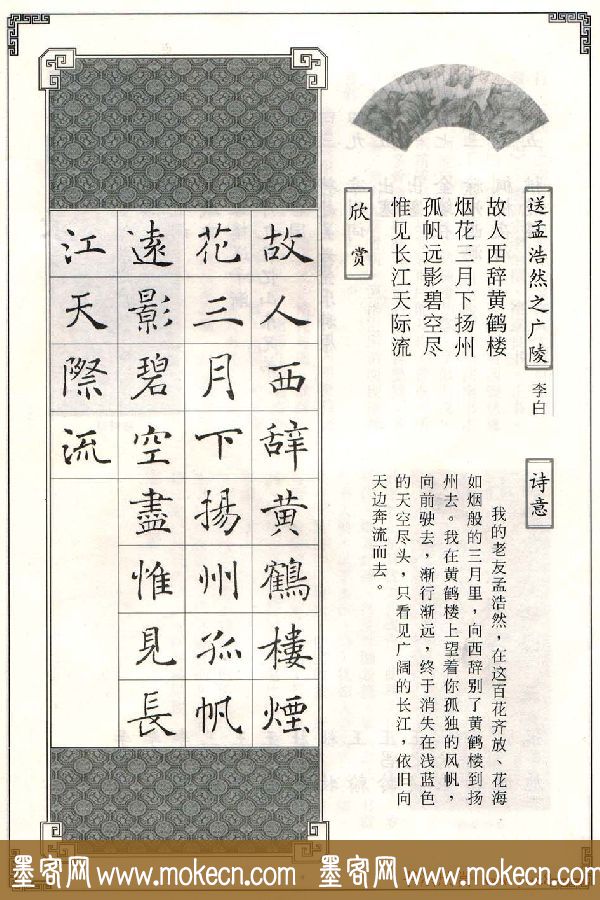 送孟浩然之广陵
李白
故人西辞黄鹤楼
烟花三月下扬州
孤帆远影碧空尽
惟见长江天际流
欣赏
诗意
我的老友孟浩然，在这百花齐放、花海
如烟般的三月里，向西辞别了黄鹤楼到扬
州去。我在黄鹤楼上望着你孤独的风帆，
向前驶去，渐行渐远，终于消失在浅蓝色
的天空尽头，只看见广阔的长江，依旧向
天边奔流而去。
故人西辞黄鶴樓煙
花三月下揚州孤帆
遠影碧空盡惟見長
江天際流
墨客网 www.mokecn.com 墨客网 www.mokecn.com